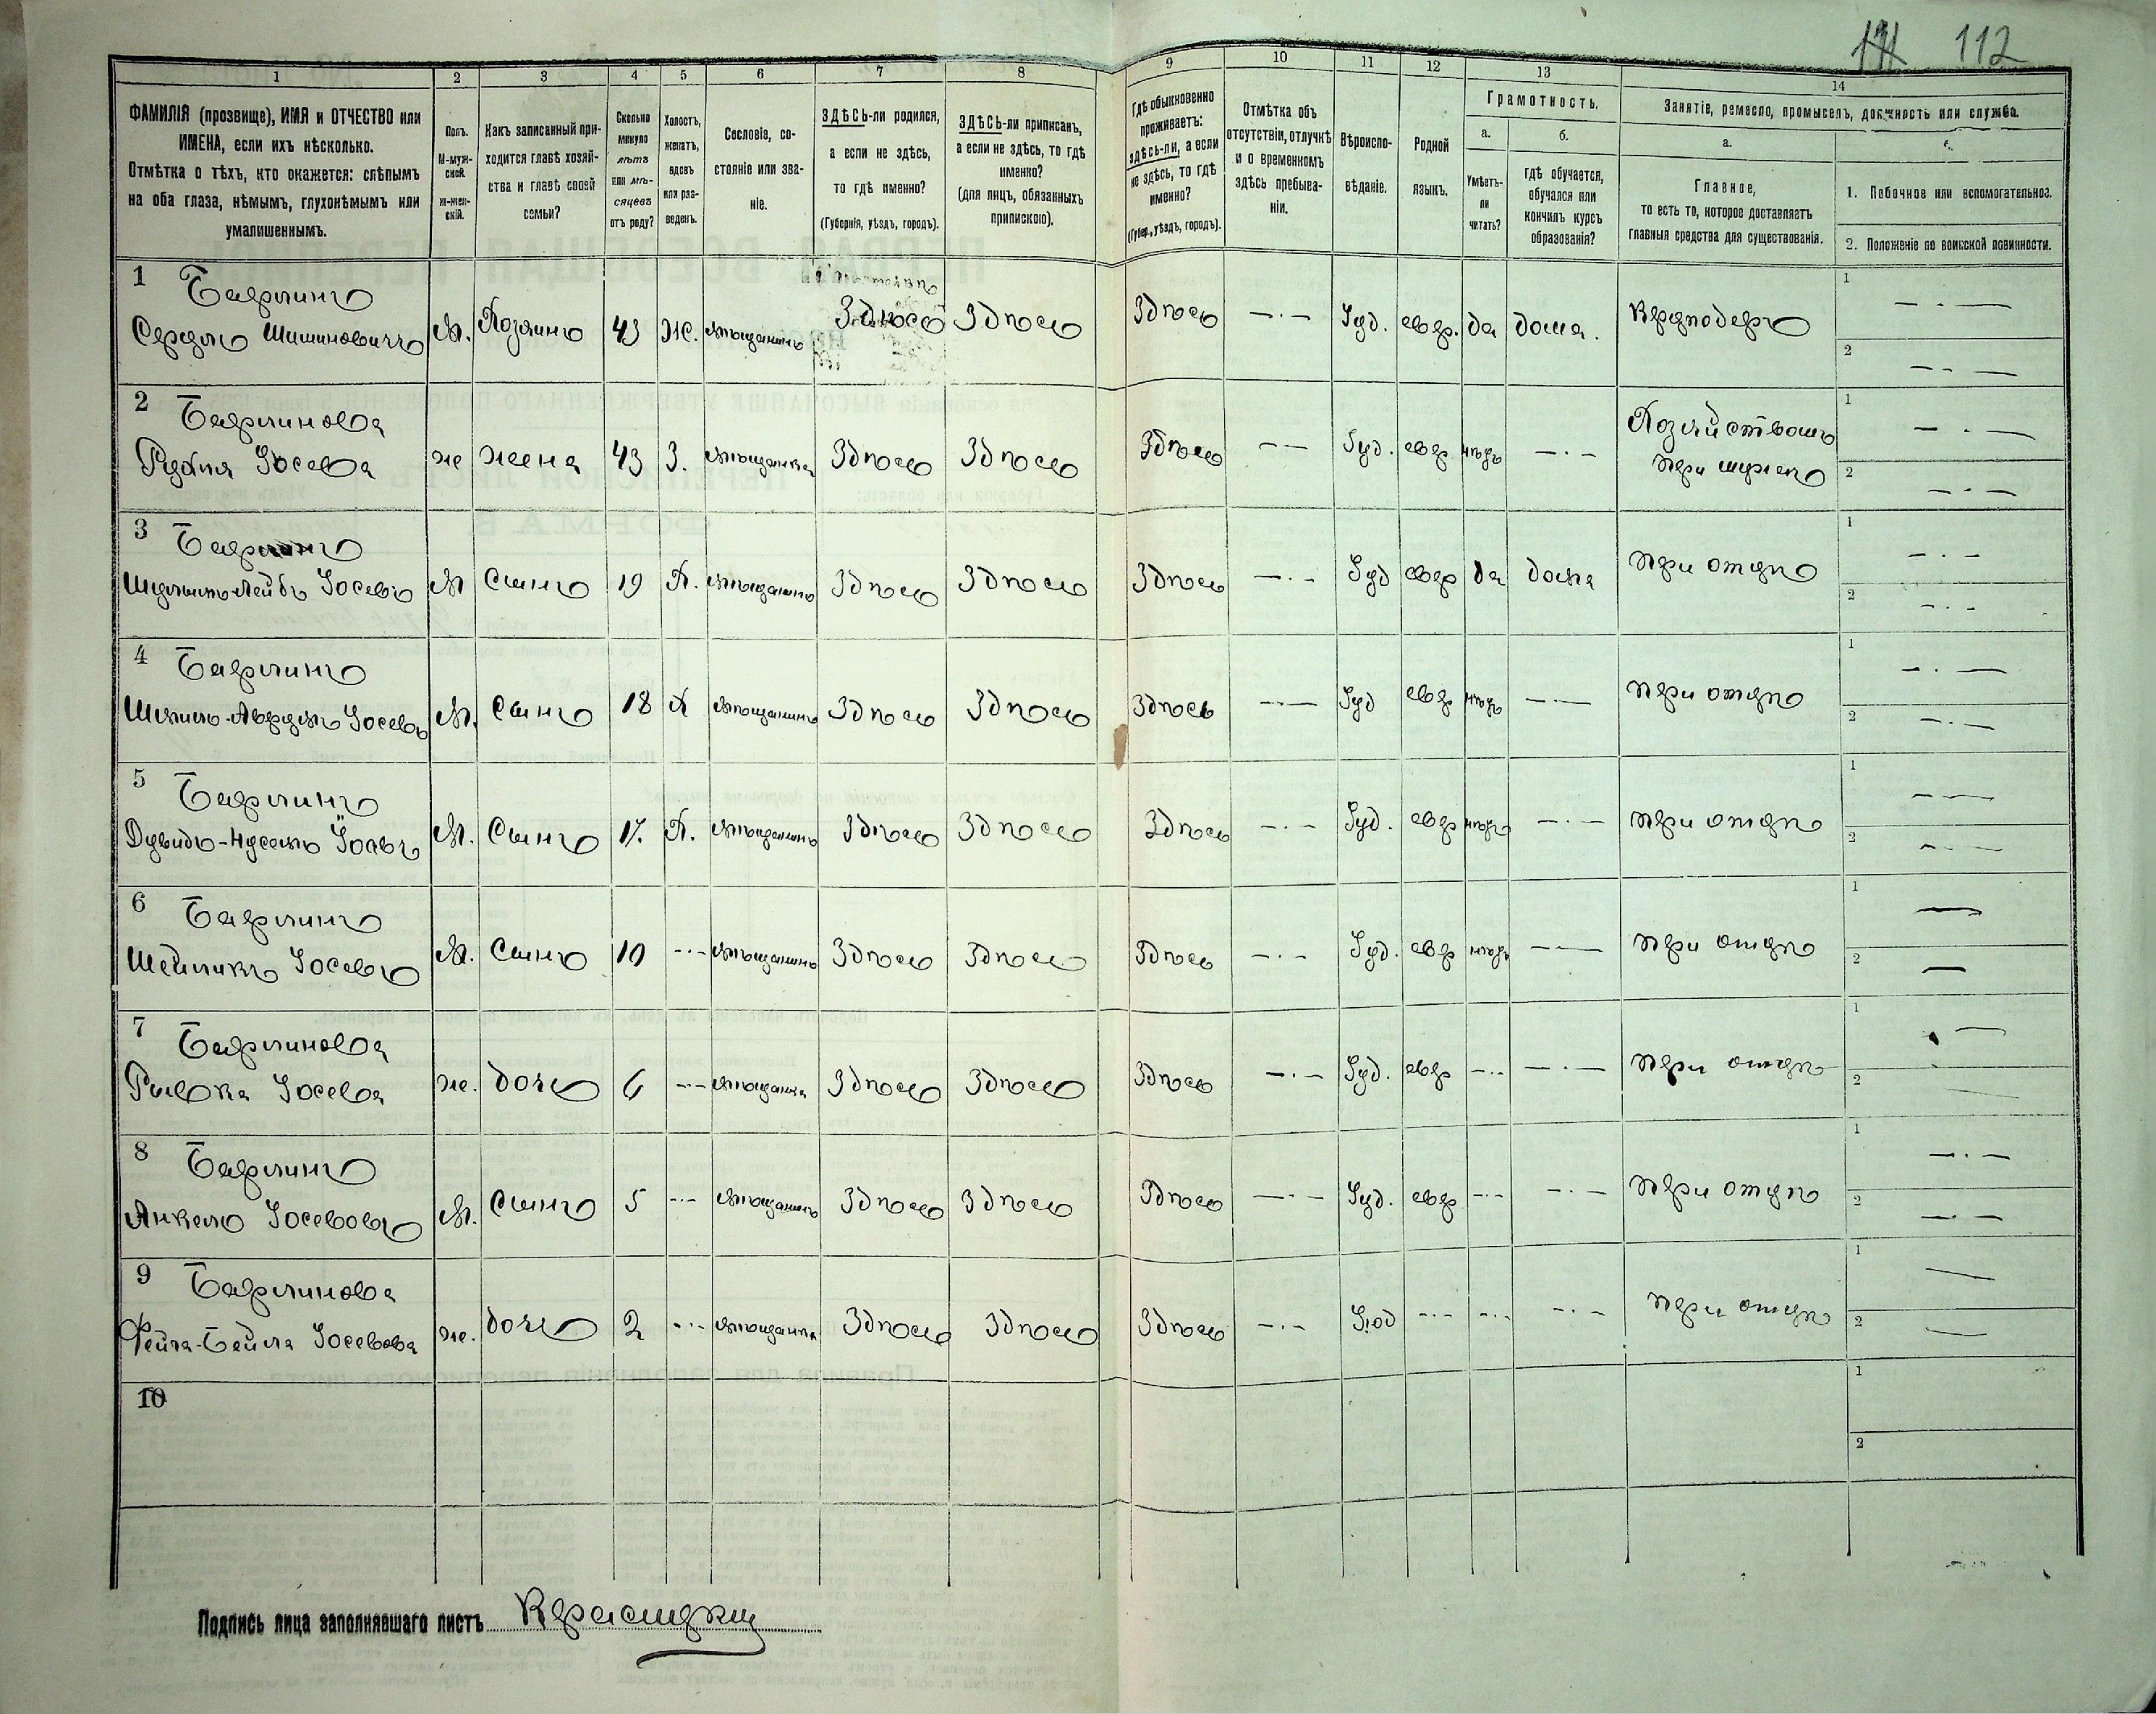 111 112
1 2 3 4 5 6 7 8 9 10 11 12 13 14
ФАМИЛІЯ (прозвище), ИМЯ и ОТЧЕСТВО или
ИМЕНА, если ихъ нѣсколько.
Отмѣтка о тѣхъ, кто окажется: слѣпымъ
на оба глаза, нѣмымъ, глухонѣмымъ или
умалишеннымъ.
Полъ.
М-муж-
ской.
ж-жен-
скій.
Какъ записанный при-
ходится главѣ хозяй-
ства и главѣ своей
семьи?
Сколько
минуло
лѣтъ
или мѣ-
сяцевъ
отъ роду?
Холостъ,
женатъ,
вдовъ
или раз-
веденъ.
Сословіе, со-
стояніе или зва-
ніе.
ЗДѢСЬ-ли родился,
а если не здѣсь,
то гдѣ именно?
(Губернія, уѣздъ, городъ).
ЗДѢСЬ-ли приписанъ,
а если не здѣсь, то гдѣ
именно?
(для лицъ, обязанныхъ
припискою).
Гдѣ обыкновенно
проживаетъ:
здѣсь-ли, а если
не здѣсь, то гдѣ
именно?
(Губер., уѣздъ, городъ).
Отмѣтка объ
отсутствіи, отлучкѣ
и о временномъ
здѣсь пребыва-
ніи.
Вѣроиспо-
вѣданіе.
Родной
языкъ.
Грамотность.
а. б.
Умѣетъ-
ли
читать?
гдѣ обучается,
обучался или
кончилъ курсъ
образованія?
Занятіе, ремесло, промыселъ, должность или служба.
а.
Главное,
то есть то, которое доставляетъ
главныя средства для существованія.
1. Побочное или вспомогательное.
2. Положеніе по воинской повинности.
1 Берлинъ
М. Хозяинъ 43 Ж. мѣщанинъ Здѣсь Здѣсь Здѣсь — · — Іуд. евр. да дома. 1 — · —
2 — · —
2 Берлинова
Іосева ж жена 43 З. мѣщанка Здѣсь Здѣсь Здѣсь — — Іуд. евр нѣтъ — · — Хозяйствомъ
при мужѣ 1 — · —
2 — · —
3 Берлинъ
Іосевъ М Сынъ 19 Х. мѣщанинъ Здѣсь Здѣсь Здѣсь — · — Іуд евр да дома при отцѣ 1 — · —
2 — · —
4 Берлинъ
Іосевъ М. Сынъ 18 Х мѣщанинъ Здѣсь Здѣсь Здѣсь — · — Іуд евр нѣтъ — · — при отцѣ 1 — · —
2 — · —
5 Берлинъ
Дувидъ- М. Сынъ 17. Х. мѣщанинъ Здѣсь Здѣсь Здѣсь — · — Іуд. евр нѣтъ — · — при отцѣ 1 — · —
2 — · —
6 Берлинъ
Іосевъ М. Сынъ 10 — · — мѣщанинъ Здѣсь Здѣсь Здѣсь — · — Іуд. евр нѣтъ — · — при отцѣ 1 —
2 —
7 Берлинова
Рывка Іосева ж. дочь 6 — · — мѣщанка Здѣсь Здѣсь Здѣсь — · — Іуд. евр — · — — · — при отцѣ 1 —
2 —
8 Берлинъ
Янкель Іосевовъ М. Сынъ 5 — · — мѣщанинъ Здѣсь Здѣсь Здѣсь — · — Іуд. евр — · — — · — при отцѣ 1 — · —
2 — · —
9 Берлинова
Фейга-Бейла Іосевова ж. дочь 2 — · — мѣщанка Здѣсь Здѣсь Здѣсь — · — Іюд — · — — · — — · — при отцѣ 1 —
2 —
10 1
2
Подпись лица заполнявшаго листъ